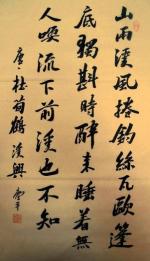 山雨溪風捲釣絲瓦甌篷
底獨斟時醉来睡着無
人喚流下前溪也不知
唐杜荀鶴溪興